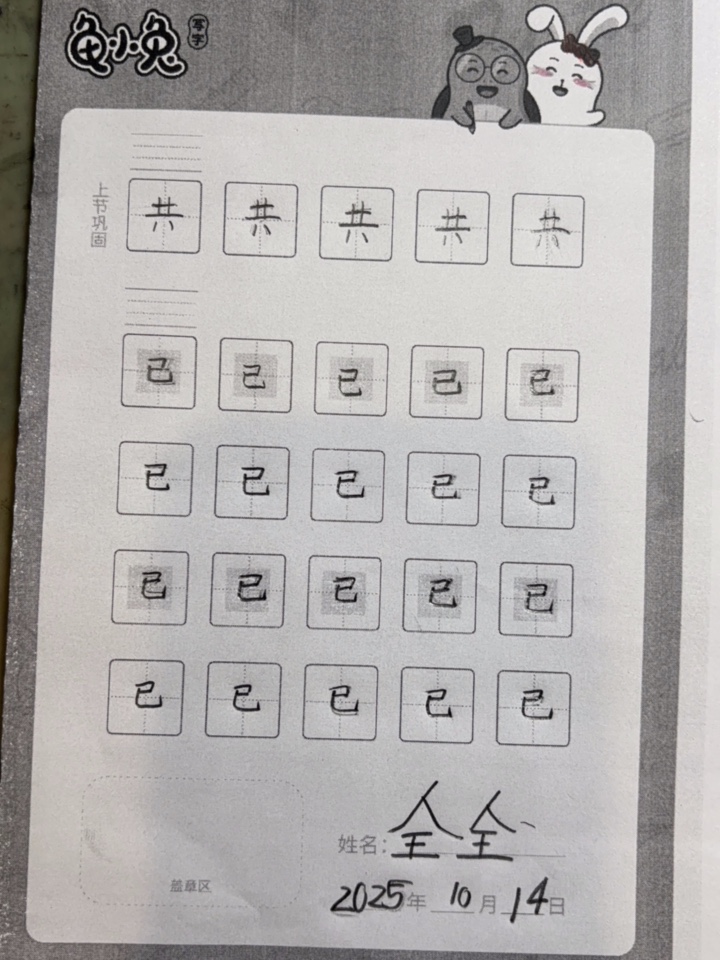 龟小兔 写字
上节巩固
共 共 共 共 共
已 已 已 已 已
已 已 已 已 已
已 已 已 已 已
已 已 已 已 已
姓名：全全
2025年 10月 14日
盖章区